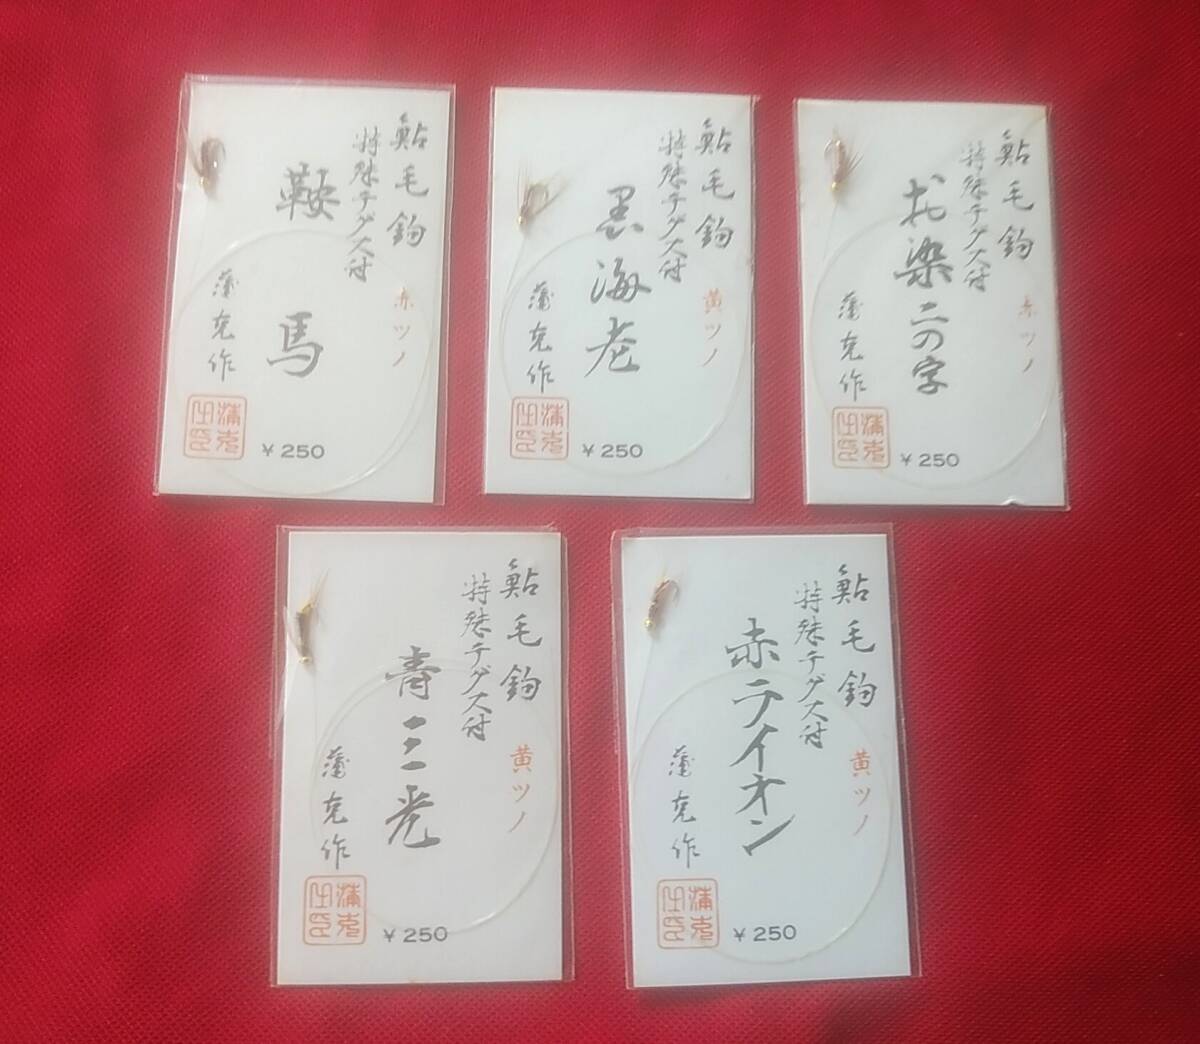 鮎毛鈎
特殊テグス付
赤ツノ
鞍馬
蒲克作
¥250
鮎毛鈎
特殊テグス付
黄ツノ
黒海老
蒲克作
¥250
鮎毛鈎
特殊テグス付
赤ツノ
お染二の字
蒲克作
¥250
鮎毛鈎
特殊テグス付
黄ツノ
青三光
蒲克作
¥250
鮎毛鈎
特殊テグス付
黄ツノ
赤ライオン
蒲克作
¥250